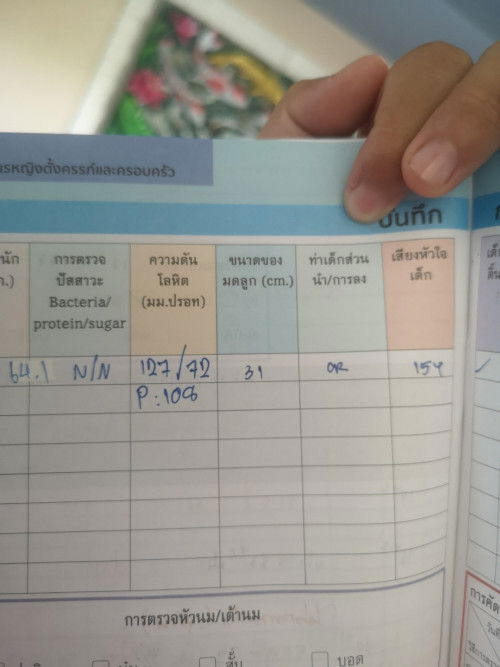 หญิงตั้งครรภ์และครอบครัว
บันทึก
การตรวจ ความดัน ขนาดของ ท่าเด็กส่วน เสียงหัวใจ
ปัสสาวะ โลหิต มดลูก (cm.) นำ/การลง เด็ก
Bacteria/ (มม.ปรอท)
protein/sugar
64.1 N/N 127/72 31 OR 154
P:108
การตรวจหัวนม/เต้านม
สั้น บอด
การคัด